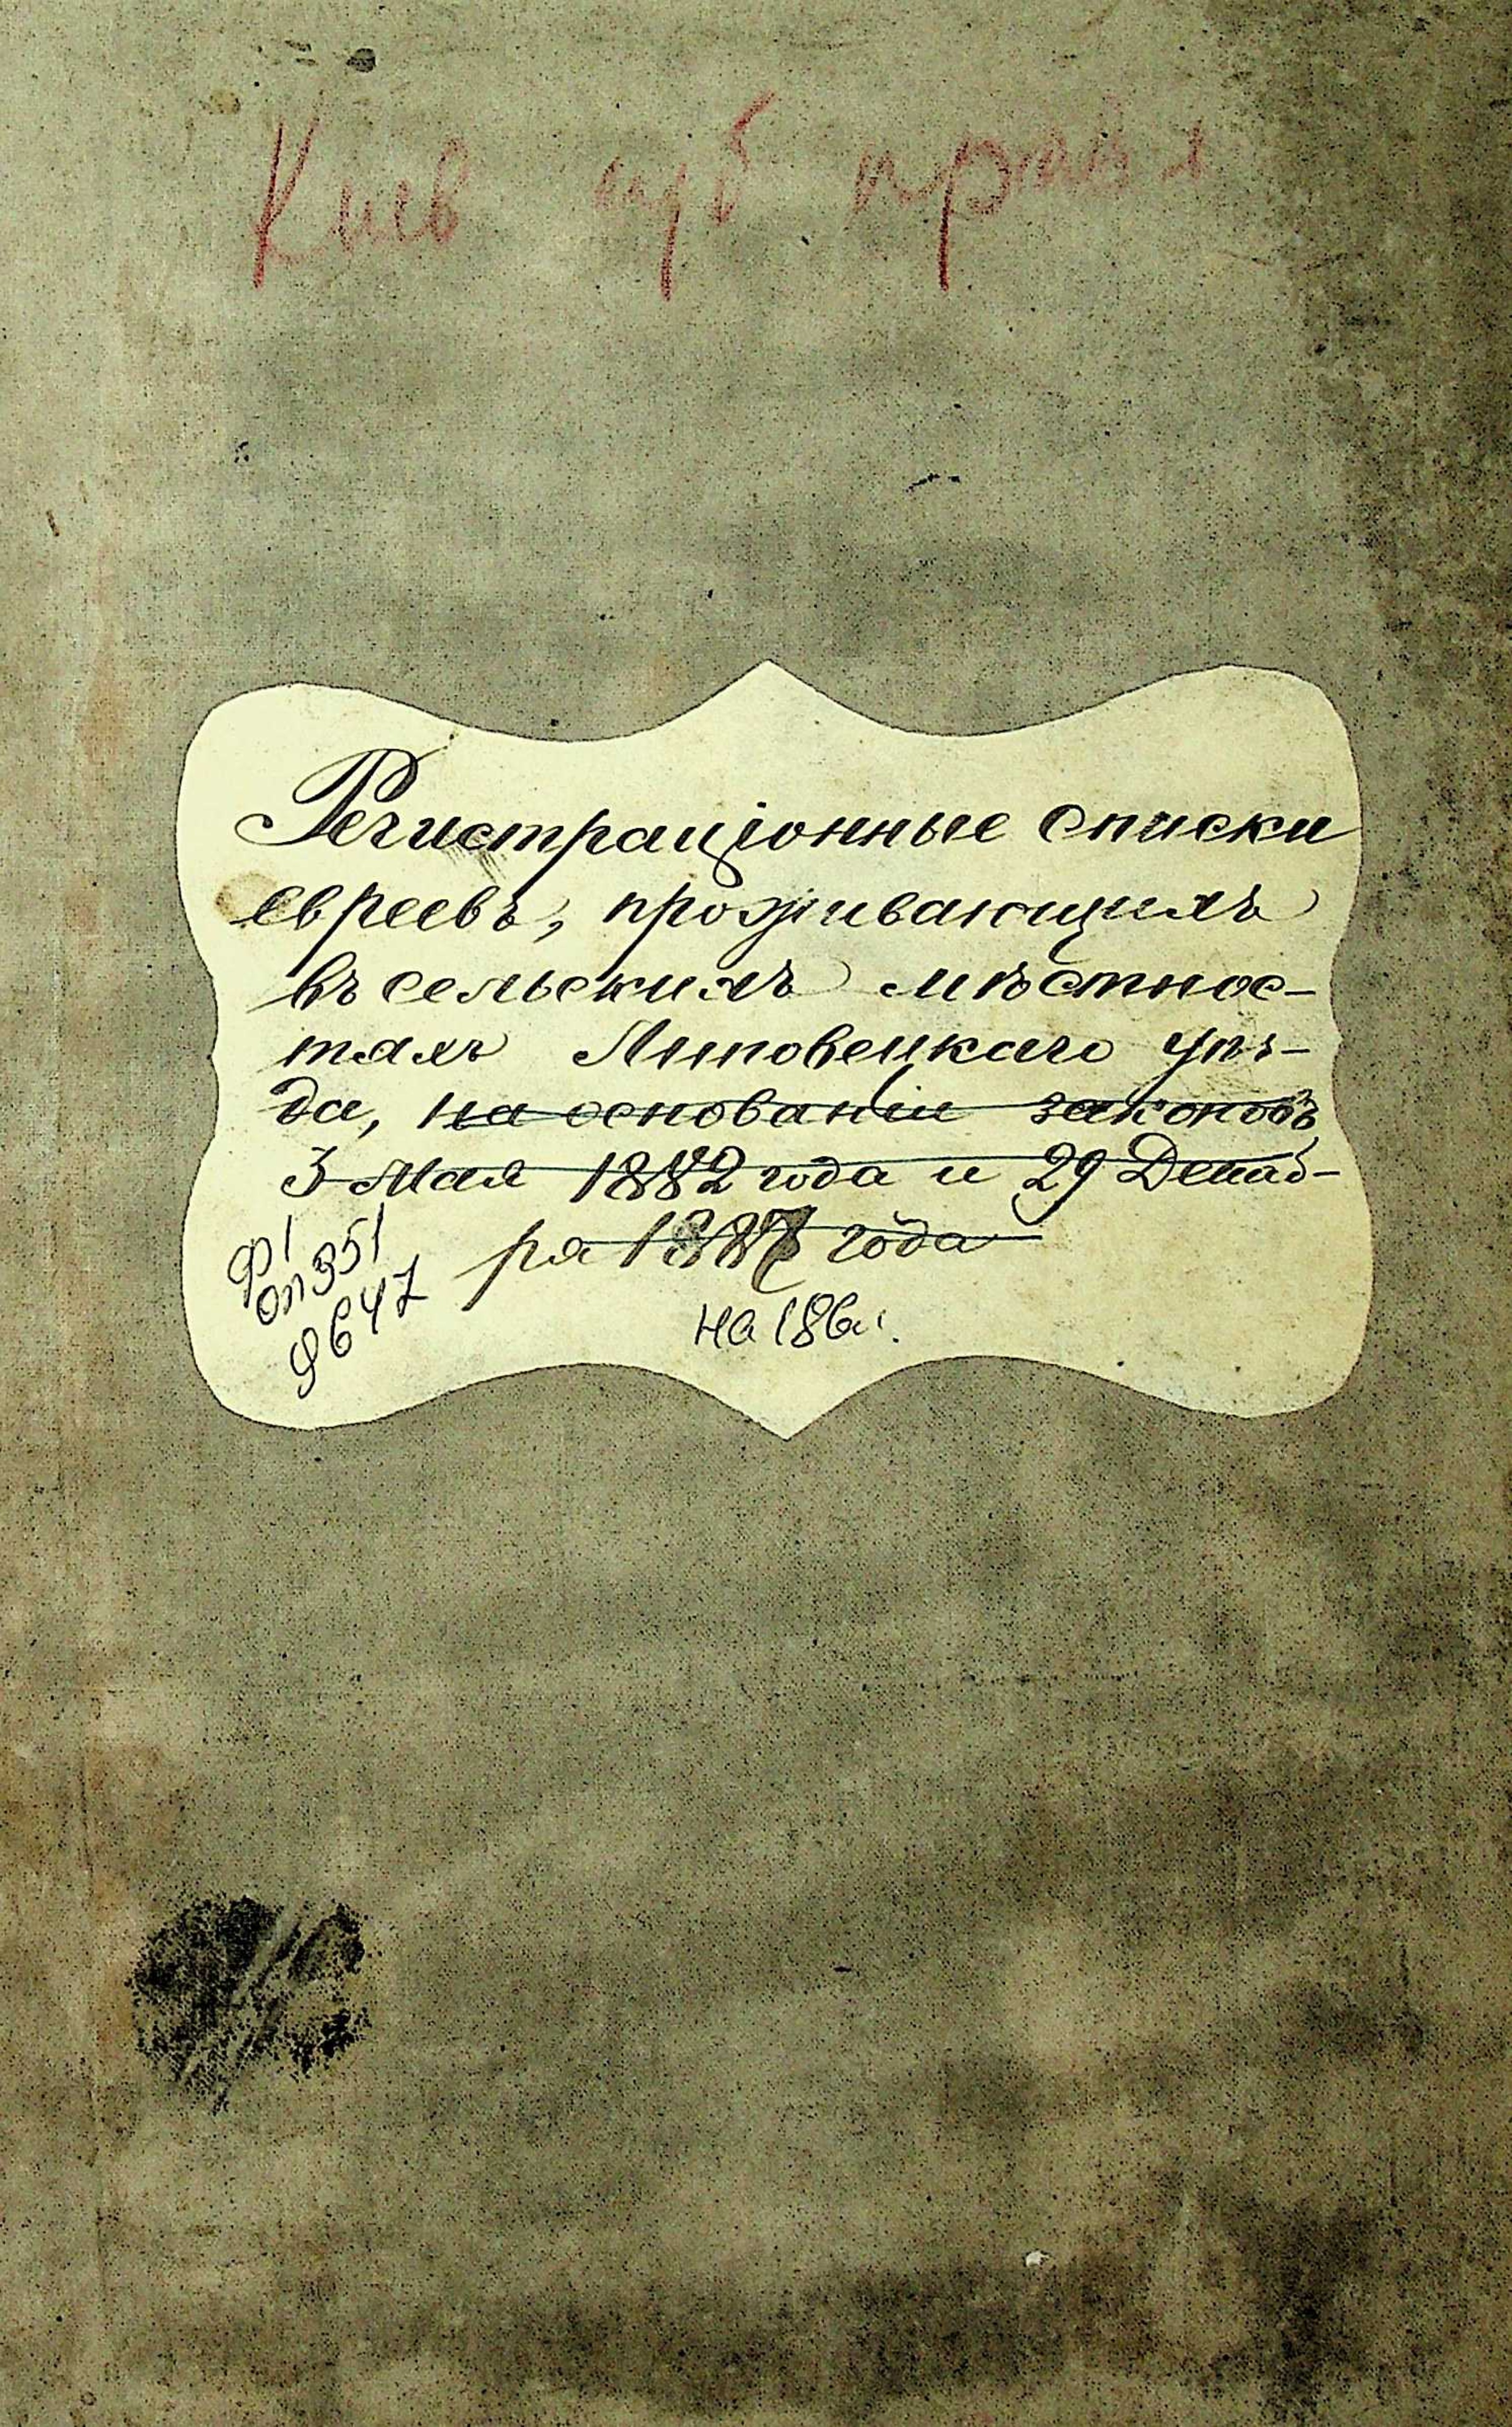 Киев губ правл
Регистраціонные списки
евреевъ, проживающихъ
въ сельскихъ мѣстнос-
тяхъ Липовецкаго уѣз-
да, на основаніи законовъ
3 Мая 1882 года и 29 Декаб-
ря 1887 года
на 186 л.
Ф 1
оп 351
д 647